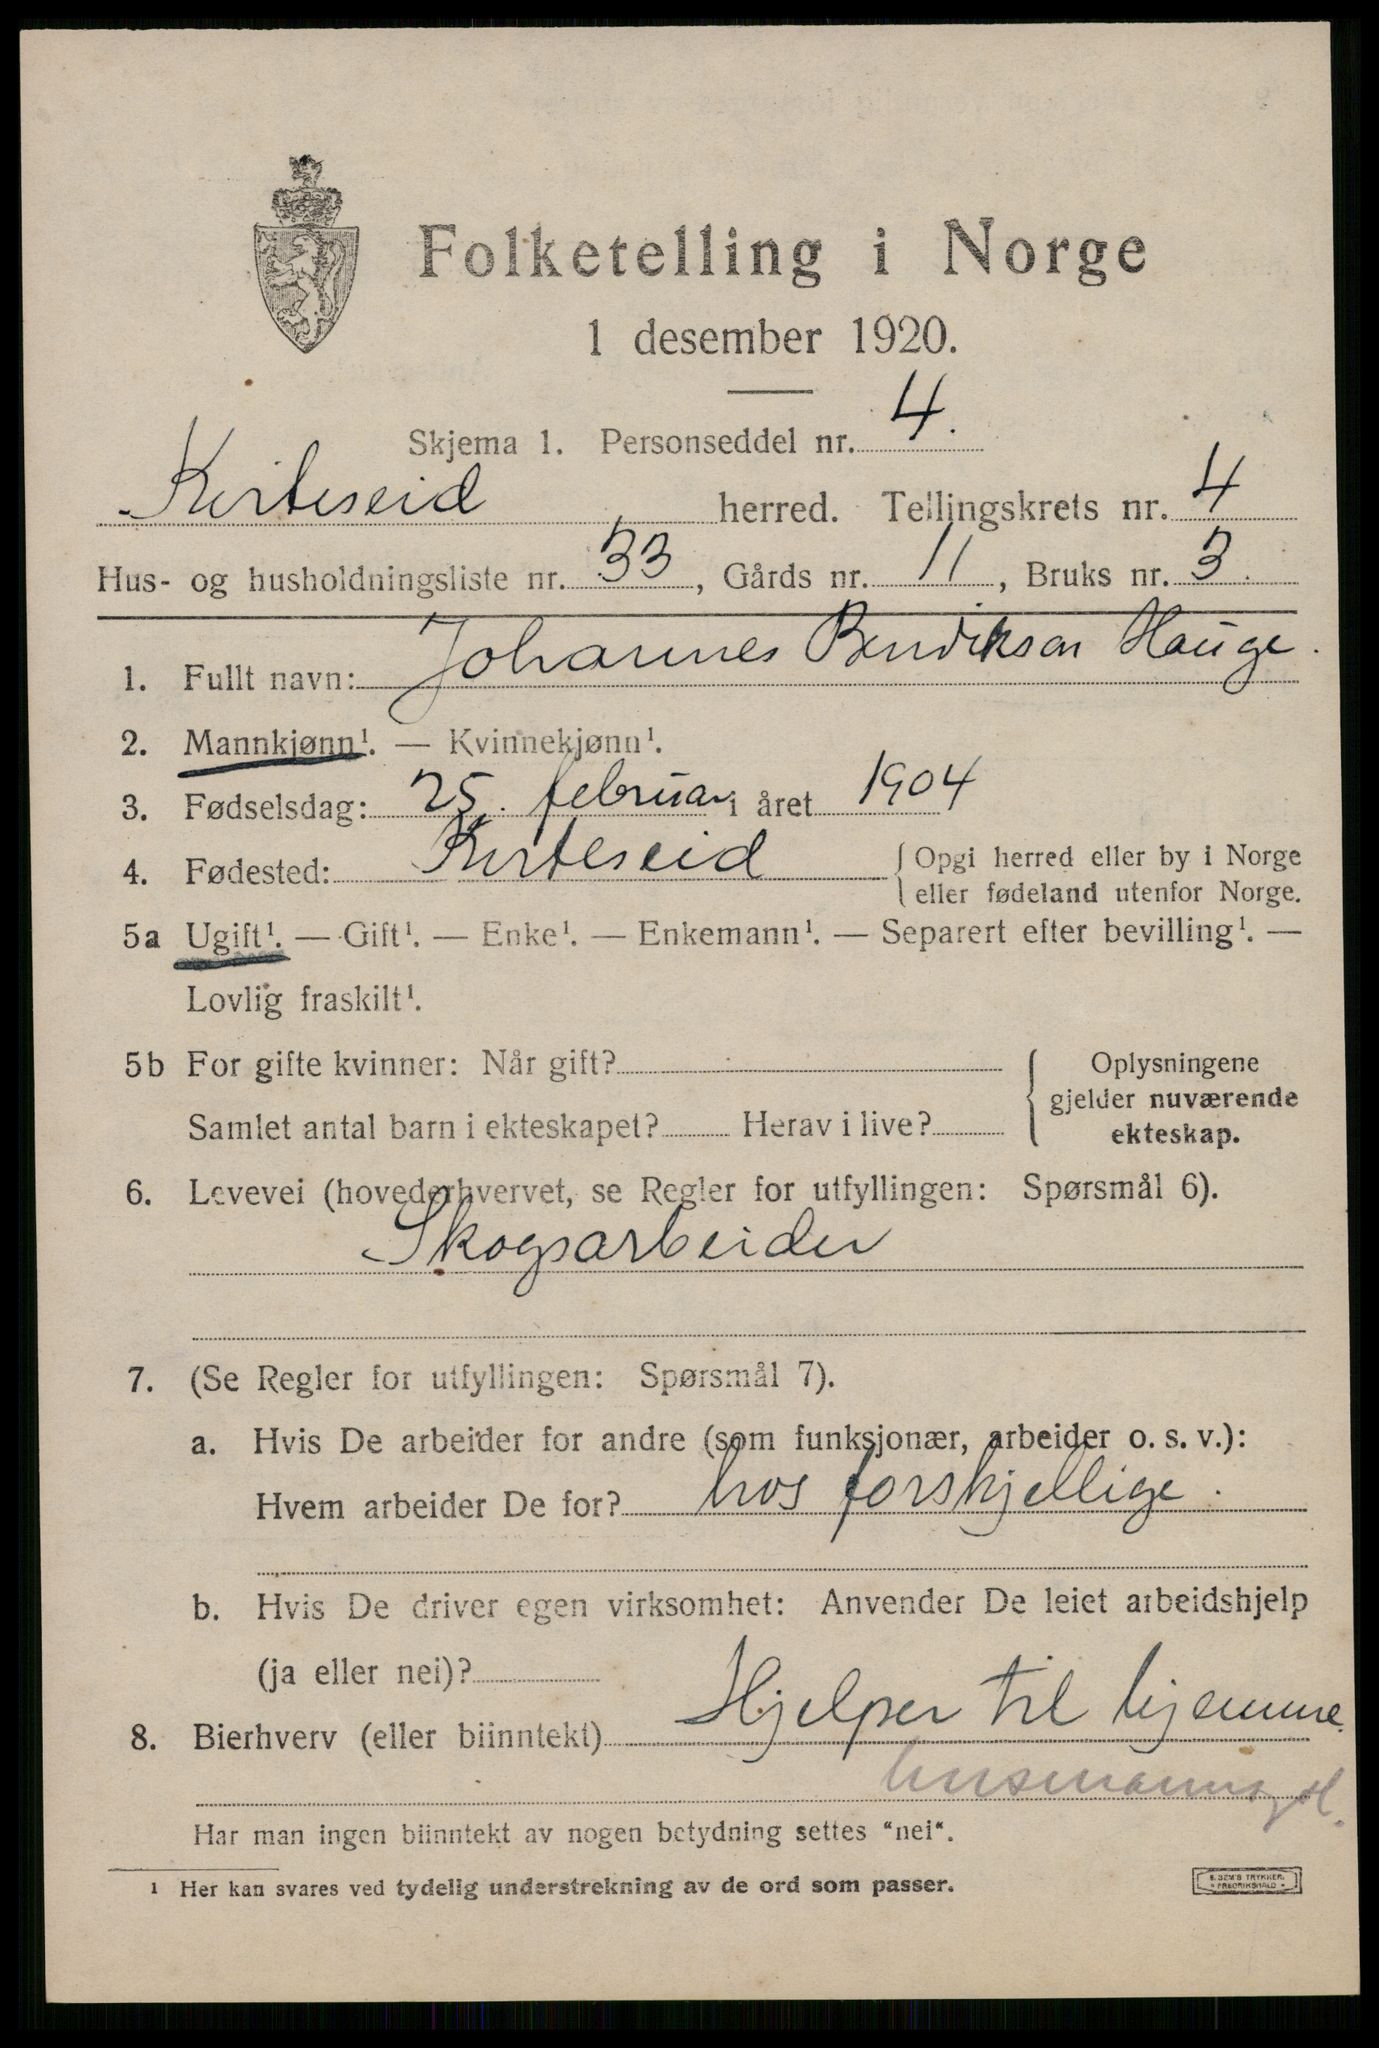 Folketelling i Norge
1 desember 1920.
Skjema 1. Personseddel nr. 4.
Kviteseid herred. Tellingskrets nr. 4
Hus- og husholdningsliste nr. 33, Gårds nr. 11, Bruks nr. 3.
1. Fullt navn: Johannes Bendiksen Hauge.
2. Mannkjønn¹. — Kvinnekjønn¹.
3. Fødselsdag: 25. februar i året 1904
4. Fødested: Kviteseid { Opgi herred eller by i Norge
eller fødeland utenfor Norge.
5a Ugift¹. — Gift¹. — Enke¹. — Enkemann¹. — Separert efter bevilling¹. —
Lovlig fraskilt¹.
5b For gifte kvinner: Når gift?
Samlet antal barn i ekteskapet? Herav i live?
{ Oplysningene
gjelder nuværende
ekteskap.
6. Levevei (hovederhvervet, se Regler for utfyllingen: Spørsmål 6).
Skogsarbeider
7. (Se Regler for utfyllingen: Spørsmål 7).
a. Hvis De arbeider for andre (som funksjonær, arbeider o. s. v.):
Hvem arbeider De for? hos forskjellige.
b. Hvis De driver egen virksomhet: Anvender De leiet arbeidshjelp
(ja eller nei)?
8. Bierhverv (eller biinntekt) Hjelper til hjemme.
Har man ingen biinntekt av nogen betydning settes “nei“.
¹ Her kan svares ved tydelig understrekning av de ord som passer.
E. SEM'S TRYKKERI
• FREDRIKSHALD •